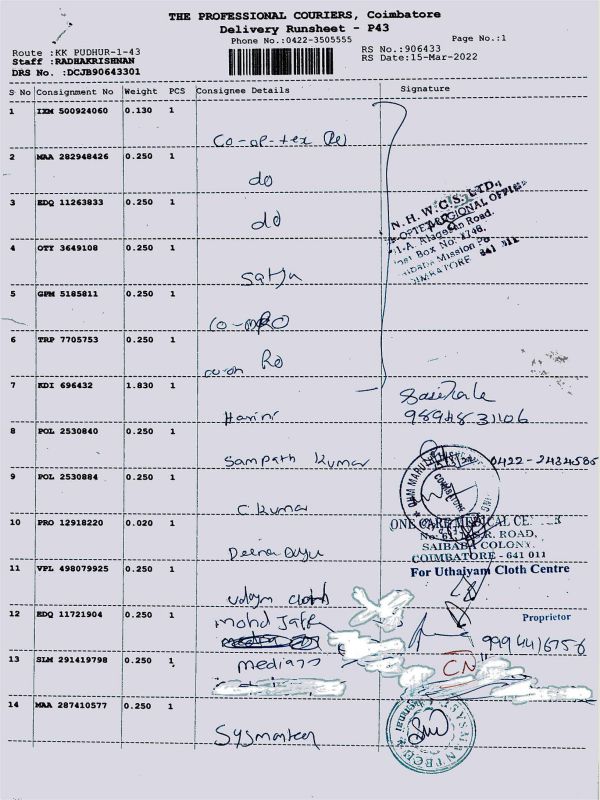 THE PROFESSIONAL COURIERS, Coimbatore
Delivery Runsheet - P43
Phone No.:0422-3505555
Page No.:1
Route :KK PUDHUR-1-43
RS No.:906433
Staff :RADHAKRISHNAN
RS Date:15-Mar-2022
DRS No. :DCJB90643301
S No Consignment No Weight PCS Consignee Details Signature
1 IXM 500924060 0.130 1
Co-op-tex
2 MAA 282948426 0.250 1
do
3 EDQ 11263833 0.250 1
do
N. H. W. C. S. LTD.,
REGIONAL OFFICE
Road.
Box No. 1748,
Mission Po
4 OTY 3649108 0.250 1
641 011
Satju
5 GPM 5185811 0.250 1
RO
6 TRP 7705753 0.250 1
Ro
7 KDI 696432 1.830 1
Harini
9894831106
8 POL 2530840 0.250 1
Sampath Kumar
0422-2434585
9 POL 2530884 0.250 1
C Kumar
10 PRO 12918220 0.020 1
ONE CARE MEDICAL
ROAD,
SAIBABA COLONY,
COIMBATORE - 641 011
11 VPL 498079925 0.250 1
For Uthaiyam Cloth Centre
12 EDQ 11721904 0.250 1
Proprietor
mohd Jaff
9994416756
13 SLM 291419798 0.250 1
CN
14 MAA 287410577 0.250 1